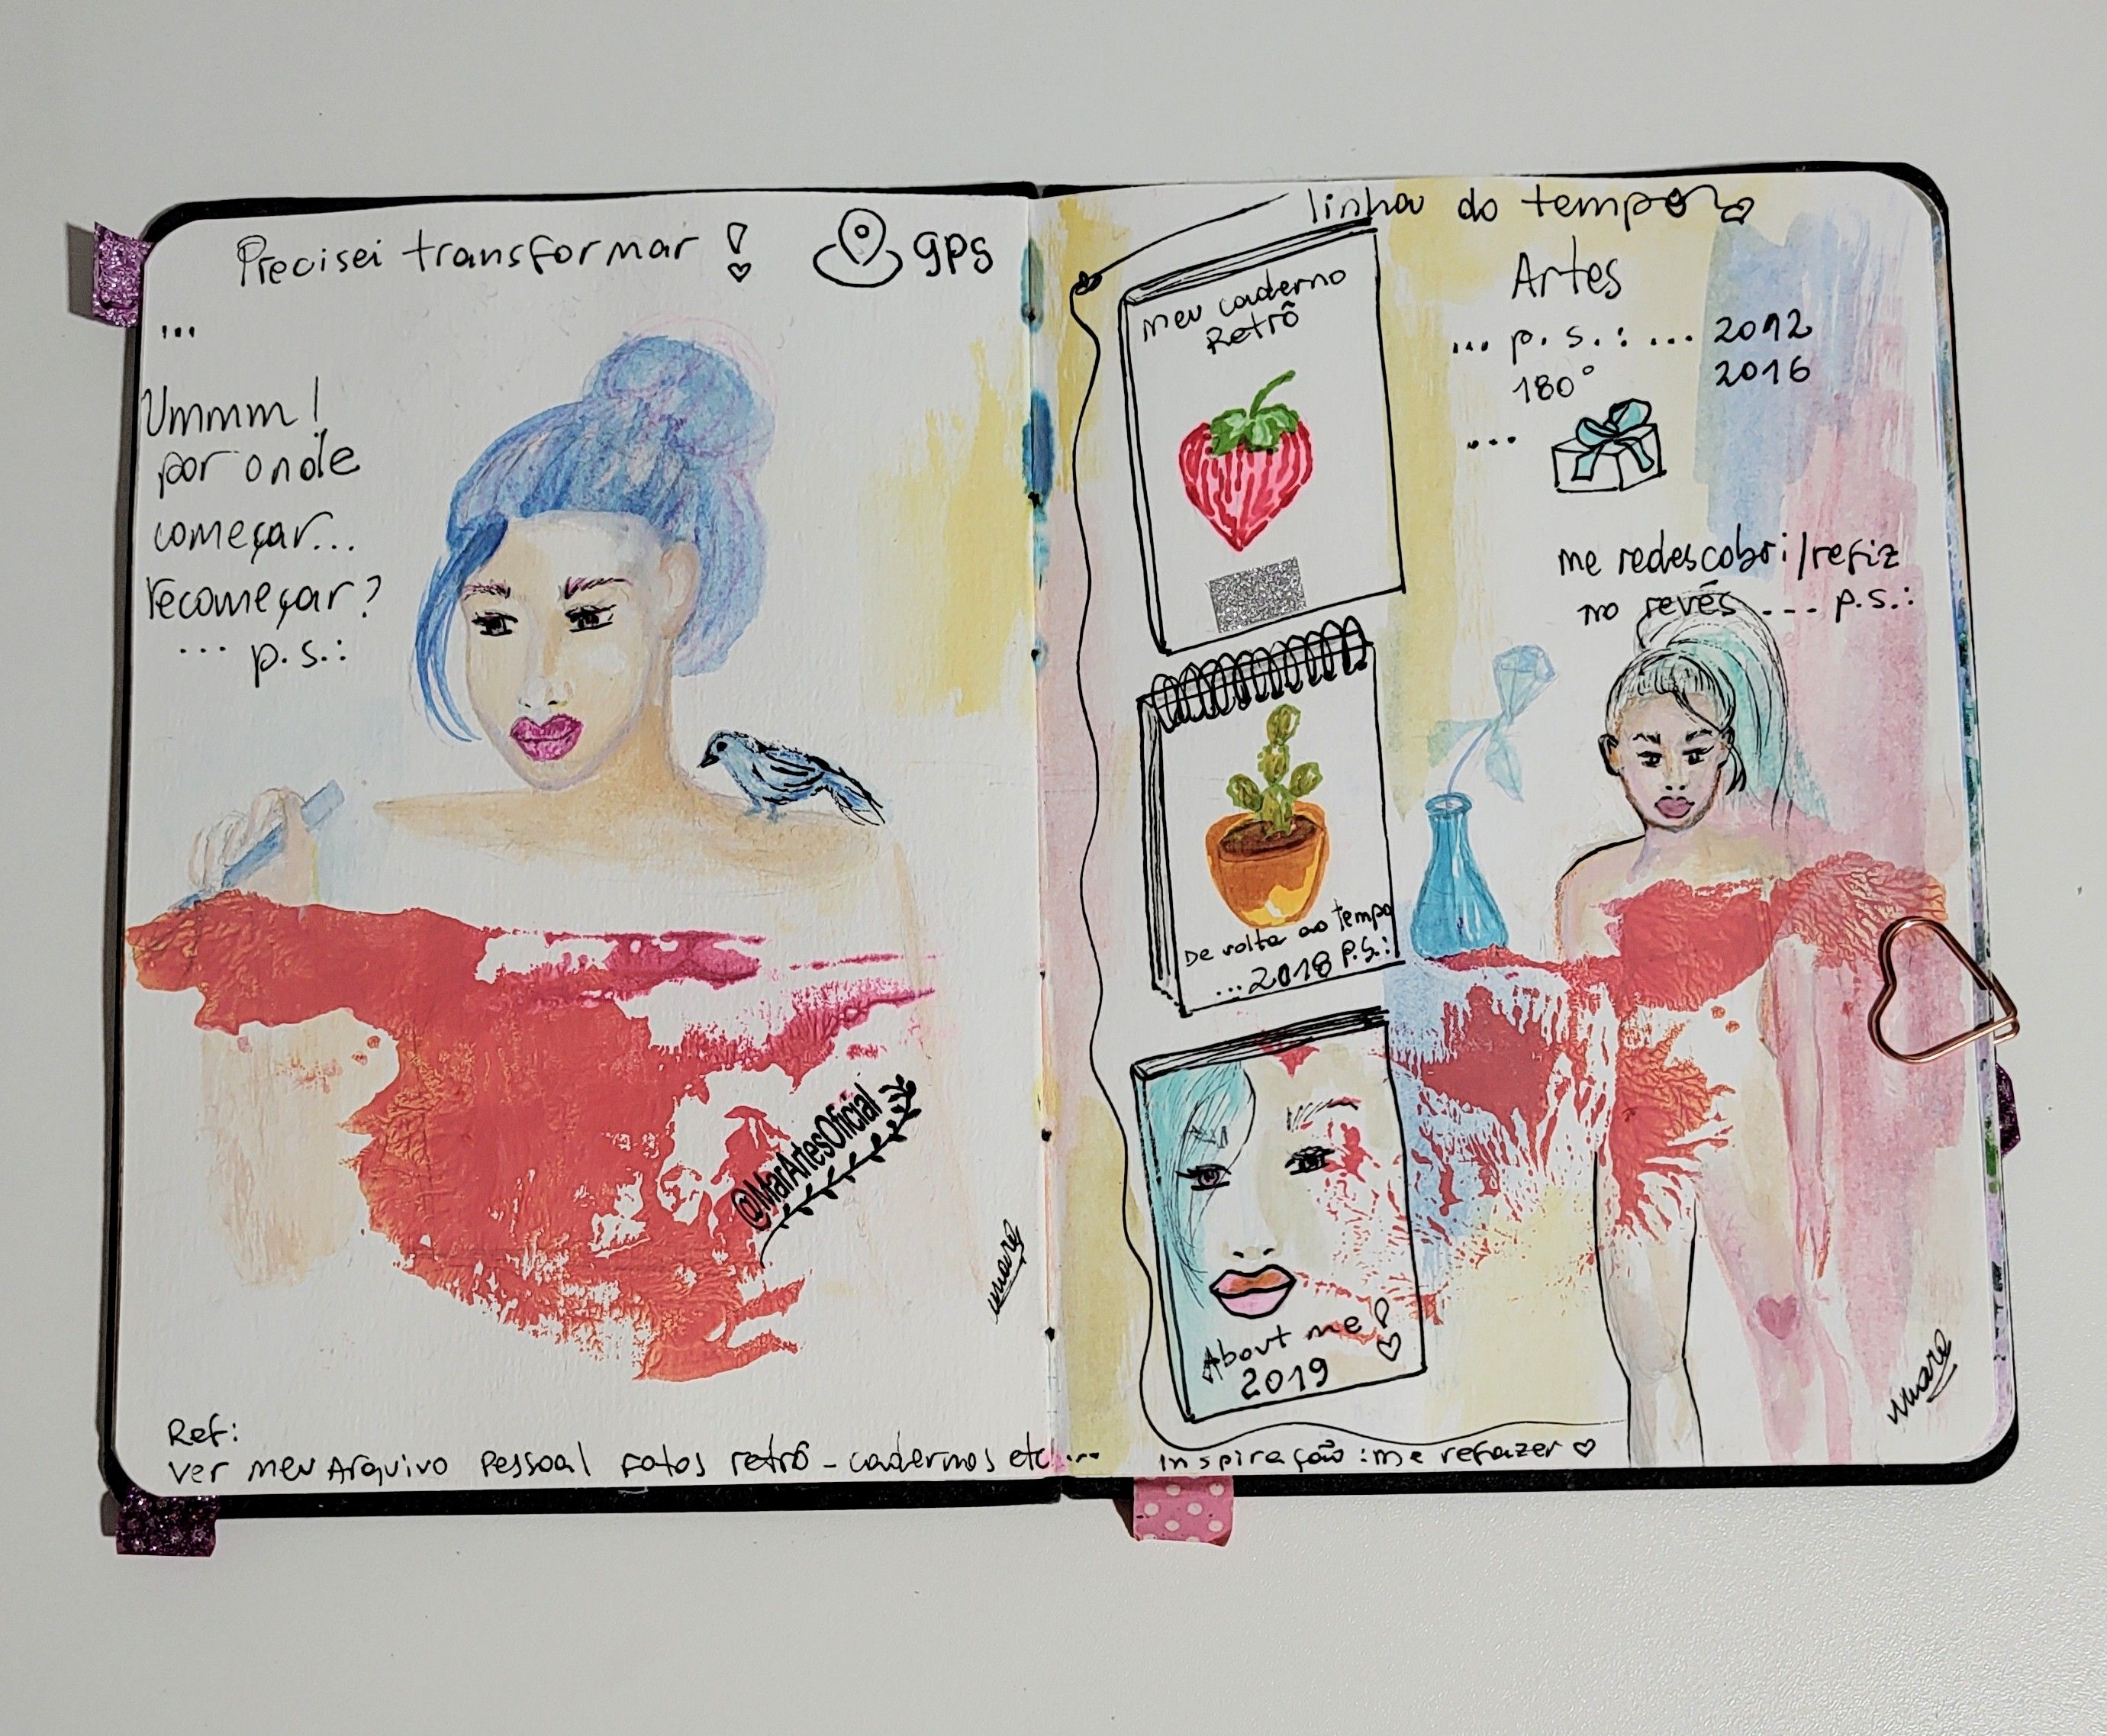 Precisei transformar !
gps
...
Ummm !
por onde
começar...
recomeçar?
... p.s.:
@MarArtesOficial
Ref:
ver meu Arquivo Pessoal fotos retrô - cadernos etc ...
linha do tempo
Artes
... p. s. : ... 2012
180° 2016
...
meu caderno
Retrô
me redescobri/refiz
no revés .... p.s.:
De volta ao tempo
...2018 p.s.:
About me!
2019
inspiração : me refazer